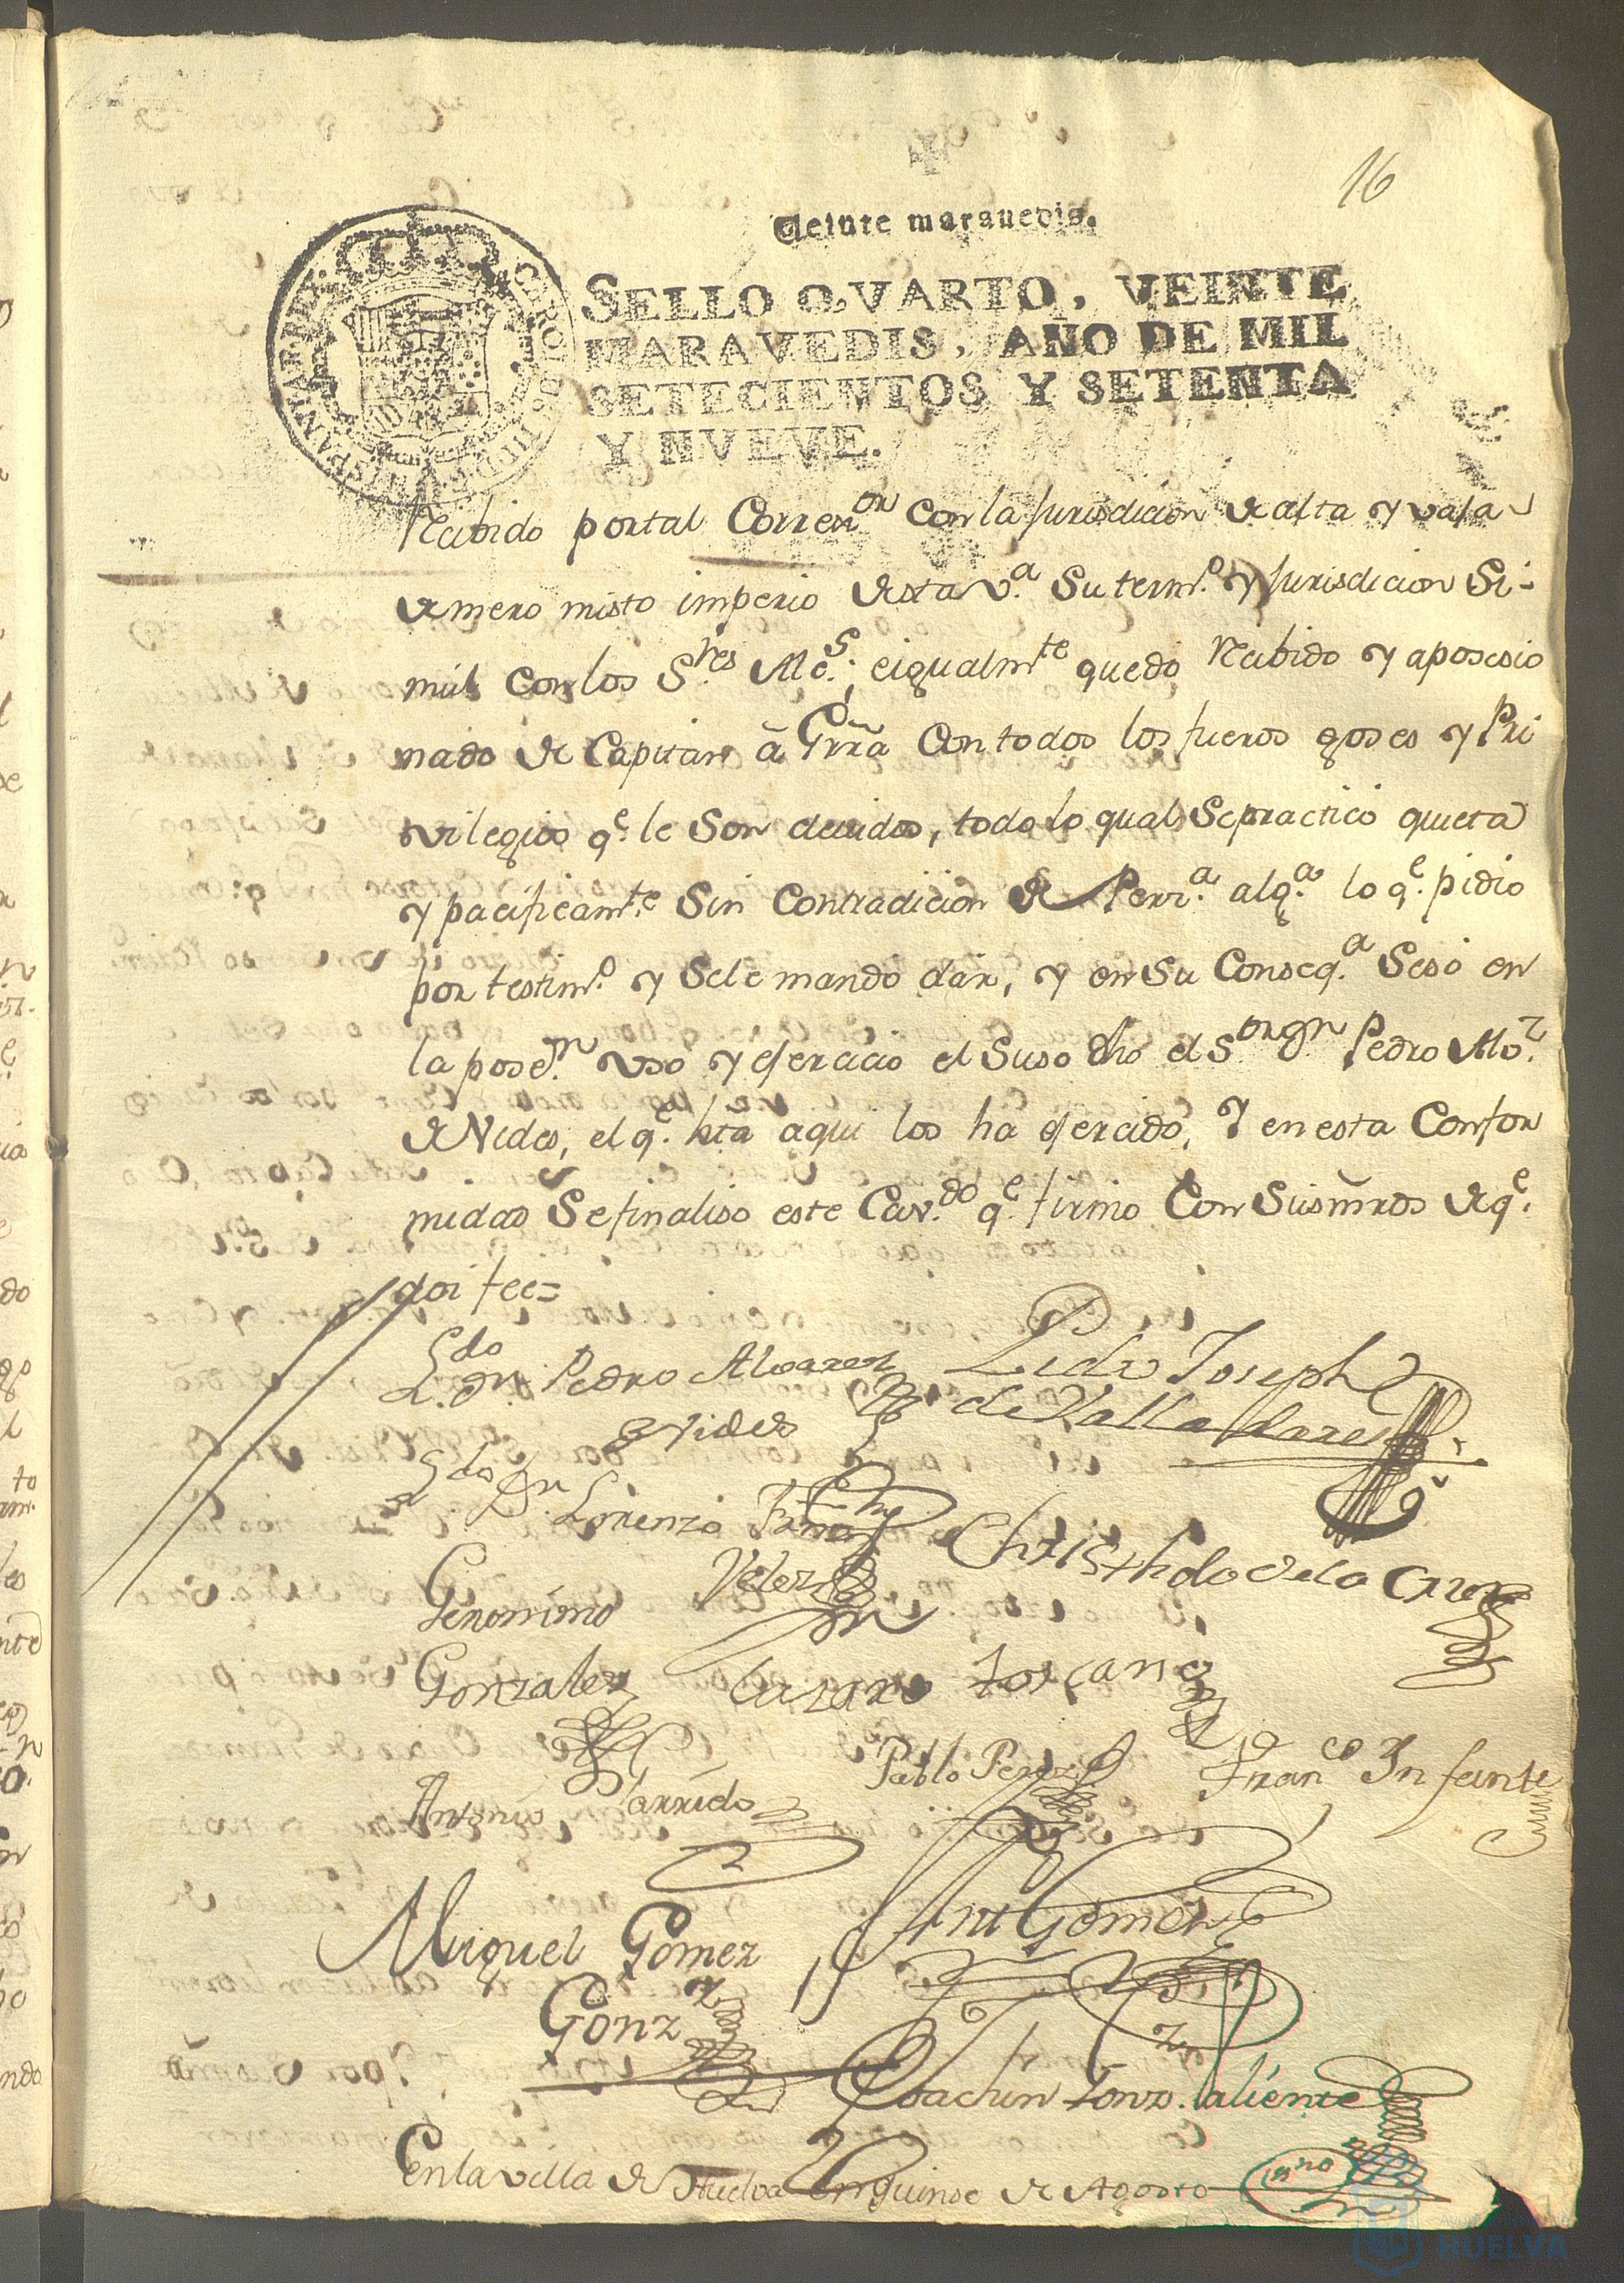 16
Veinte maravedis.
SELLO QVARTO, VEINTE
MARAVEDIS, AÑO DE MIL
SETECIENTOS Y SETENTA
Y NVEVE.
CAROLUS III D G HISPANIAR REX
Recibido por tal Correxor con la Jurisdicion de alta y vaja
de mero misto imperio de esta va. su termo. y Jurisdicion Si-
mil con los Sres Mes. e igualmte quedo recibido y aposesio
nado de Capitan â Grra con todos los fueros goses y Pri
vilegios qe. le son devidos, todo lo qual se practicó quieta
y pacificamte. sin contradicion de Perza. alga. lo qe. pidio
por testimo. y sele mando dàr, y en su conseqa. Sesó en
la posen. uso y ejercicio el suso dho el Sor Dn Pedro Alvz.
de Vides, el qe. hta aqui los ha ejercido, Y en esta Confor
midad Se finaliso este Cavdo. qe. firmo Con Sus mrds de qe.
doi fee=
Ldo. Dn. Pedro Alvarez
de Vides
Pedro Joseph
de Valladares
Ldo Dn. Lorenzo
Velez
Christhobl de la Cruz
Geronimo
Gonzalez
Lazaro toscano
Antonio Garrido
Pablo Perez
Franco Infante
Miguel Gomez
Gonzz
Ant Gomez
Joachin Gonzz. Valiente
En la villa de Huelva en quinse de Agosto
HUELVA